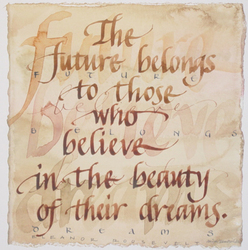 The
future belongs
FUTURE
to those
who
BELONGS
believe
in the beauty
of their dreams.
DREAMS